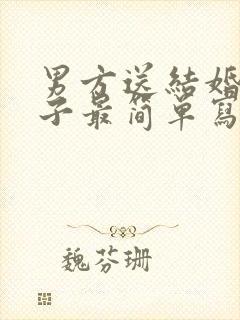 男方送結婚
子最简单寫
魏芬珊